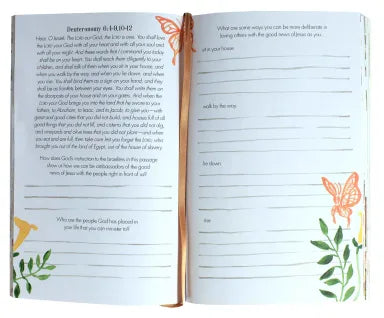 Deuteronomy 6:4-9,10-12
Hear, O Israel: The LORD our God, the LORD is one. You shall love
the LORD your God with all your heart and with all your soul and
with all your might. And these words that I command you today
shall be on your heart. You shall teach them diligently to your
children, and shall talk of them when you sit in your house, and
when you walk by the way, and when you lie down, and when
you rise. You shall bind them as a sign on your hand, and they
shall be as frontlets between your eyes. You shall write them on
the doorposts of your house and on your gates. And when the
LORD your God brings you into the land that he swore to your
fathers, to Abraham, to Isaac, and to Jacob, to give you—with
great and good cities that you did not build, and houses full of all
good things that you did not fill, and cisterns that you did not dig,
and vineyards and olive trees that you did not plant—and when
you eat and are full, then take care lest you forget the LORD, who
brought you out of the land of Egypt, out of the house of slavery.
How does God's instruction to the Israelites in this passage
show us how we can be ambassadors of the good
news of Jesus with the people right in front of us?
Who are the people God has placed in
your life that you can minister to?
What are some ways you can be more deliberate in
loving others with the good news of Jesus as you...
sit in your house:
walk by the way:
lie down:
rise: